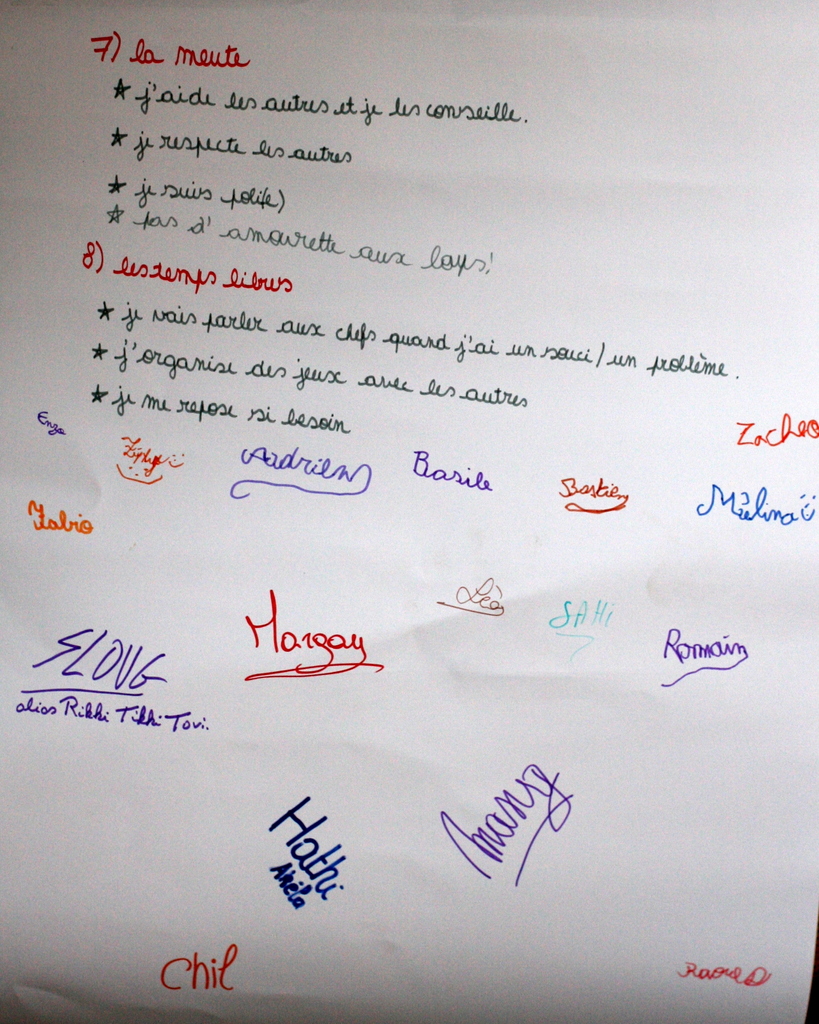 7) la meute
* j'aide les autres et je les conseille.
* je respecte les autres
* je suis poli(e)
* pas d'amourette aux loups!
8) les temps libres
* je vais parler aux chefs quand j'ai un souci / un problème.
* j'organise des jeux avec les autres
* je me repose si besoin
Enzo
Zacheo
Zéphyr
Aadrien
Basile
Bastien
Mélina
Fabio
Léo
SAHI
Margay
Romain
SLOUG
alias Rikki Tikki Tavi.
Mang
Hathi
Akela
Chil
Raoul D